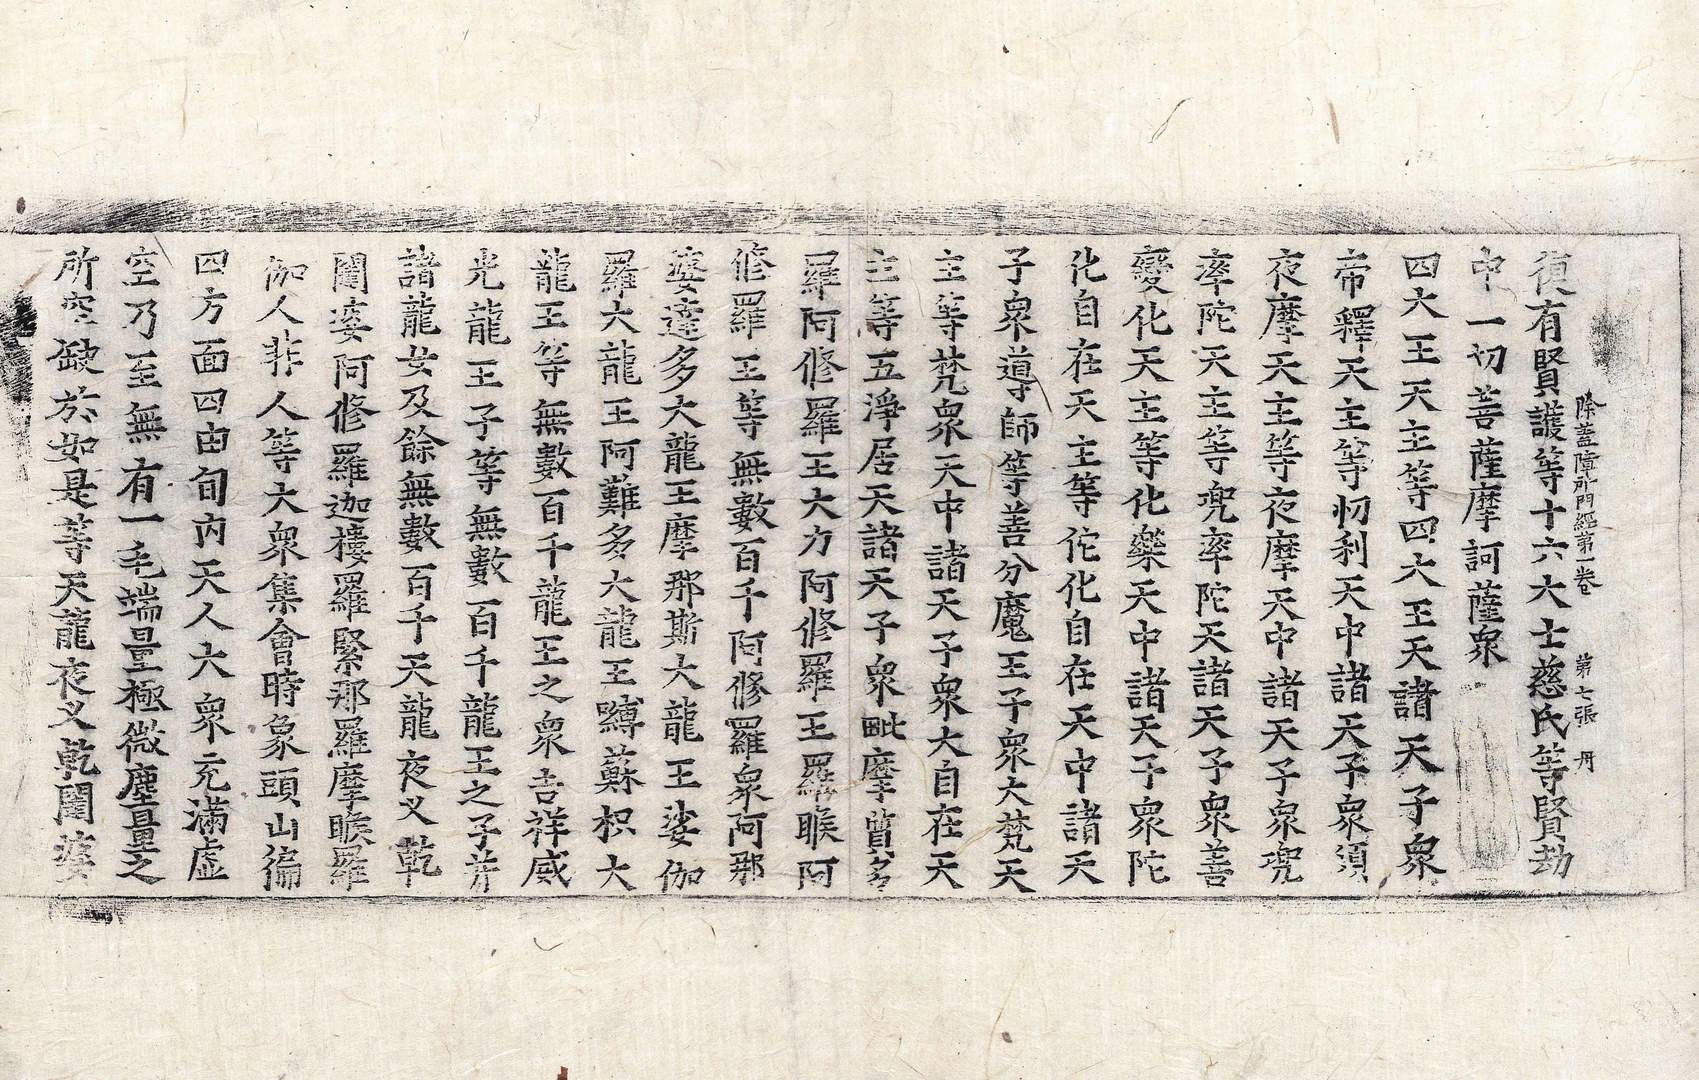 復有賢護等十六大士慈氏等賢劫
除蓋障所問經第一卷 第七張 丹
中一切菩薩摩訶薩衆
四大王天主等四大王天諸天子衆
帝釋天主等忉利天中諸天子衆須
夜摩天主等夜摩天中諸天子衆兜
率陀天主等兜率陀天諸天子衆善
變化天主等化樂天中諸天子衆陀
化自在天主等佗化自在天中諸天
子衆導師等善分魔王子衆大梵天
主等梵衆天中諸天子衆大自在天
主等五淨居天諸天子衆毗摩質多
羅阿修羅王大力阿修羅王羅睺阿
修羅王等無數百千阿修羅衆阿那
婆達多大龍王摩那斯大龍王娑伽
羅大龍王阿難多大龍王嚩蘇枳大
龍王等無數百千龍王之衆吉祥威
光龍王子等無數百千龍王之子并
諸龍女及餘無數百千天龍夜叉乾
闥婆阿修羅迦樓羅緊那羅摩睺羅
伽人非人等大衆集會時象頭山徧
四方面四由旬内天人大衆充滿虛
空乃至無有一毛端量極微塵量之
所空缺於如是等天龍夜叉乾闥婆